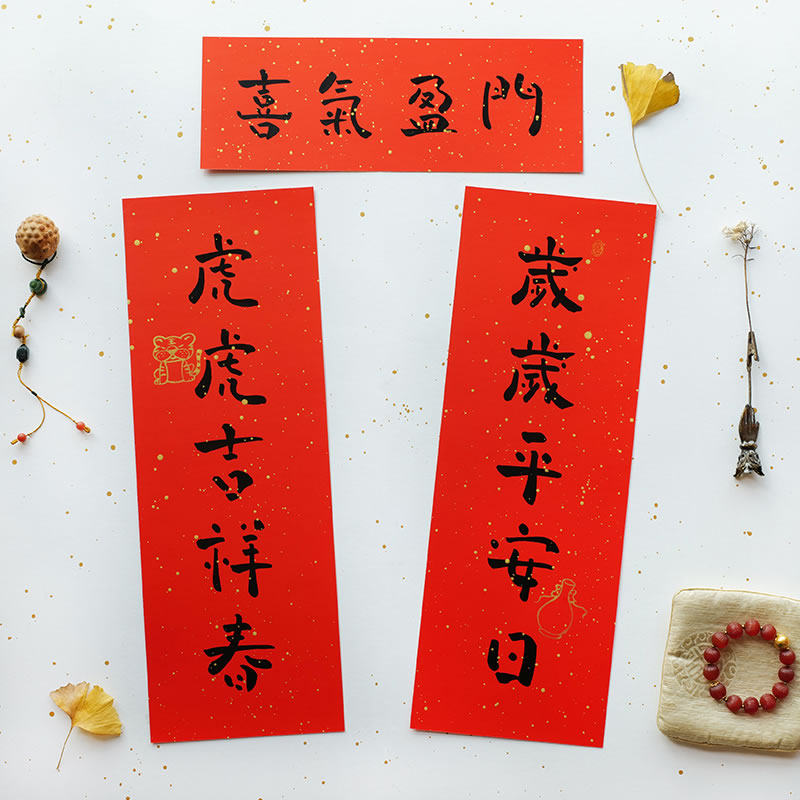 喜氣盈門
歲歲平安日
虎虎吉祥春